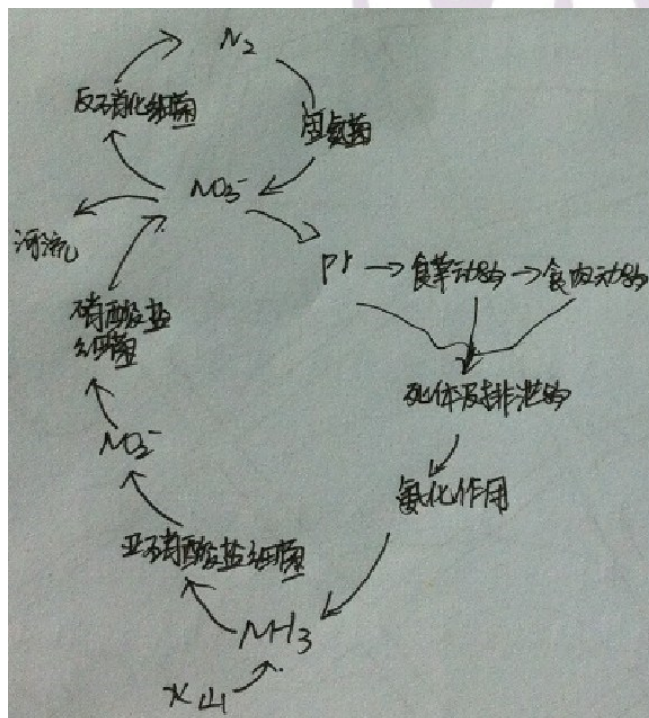 N₂
反硝化细菌
固氮菌
NO₃⁻
河流
Pr → 食草动物 → 食肉动物
硝酸盐
细菌
死体及排泄物
NO₂⁻
氨化作用
亚硝酸盐细菌
NH₃
火山